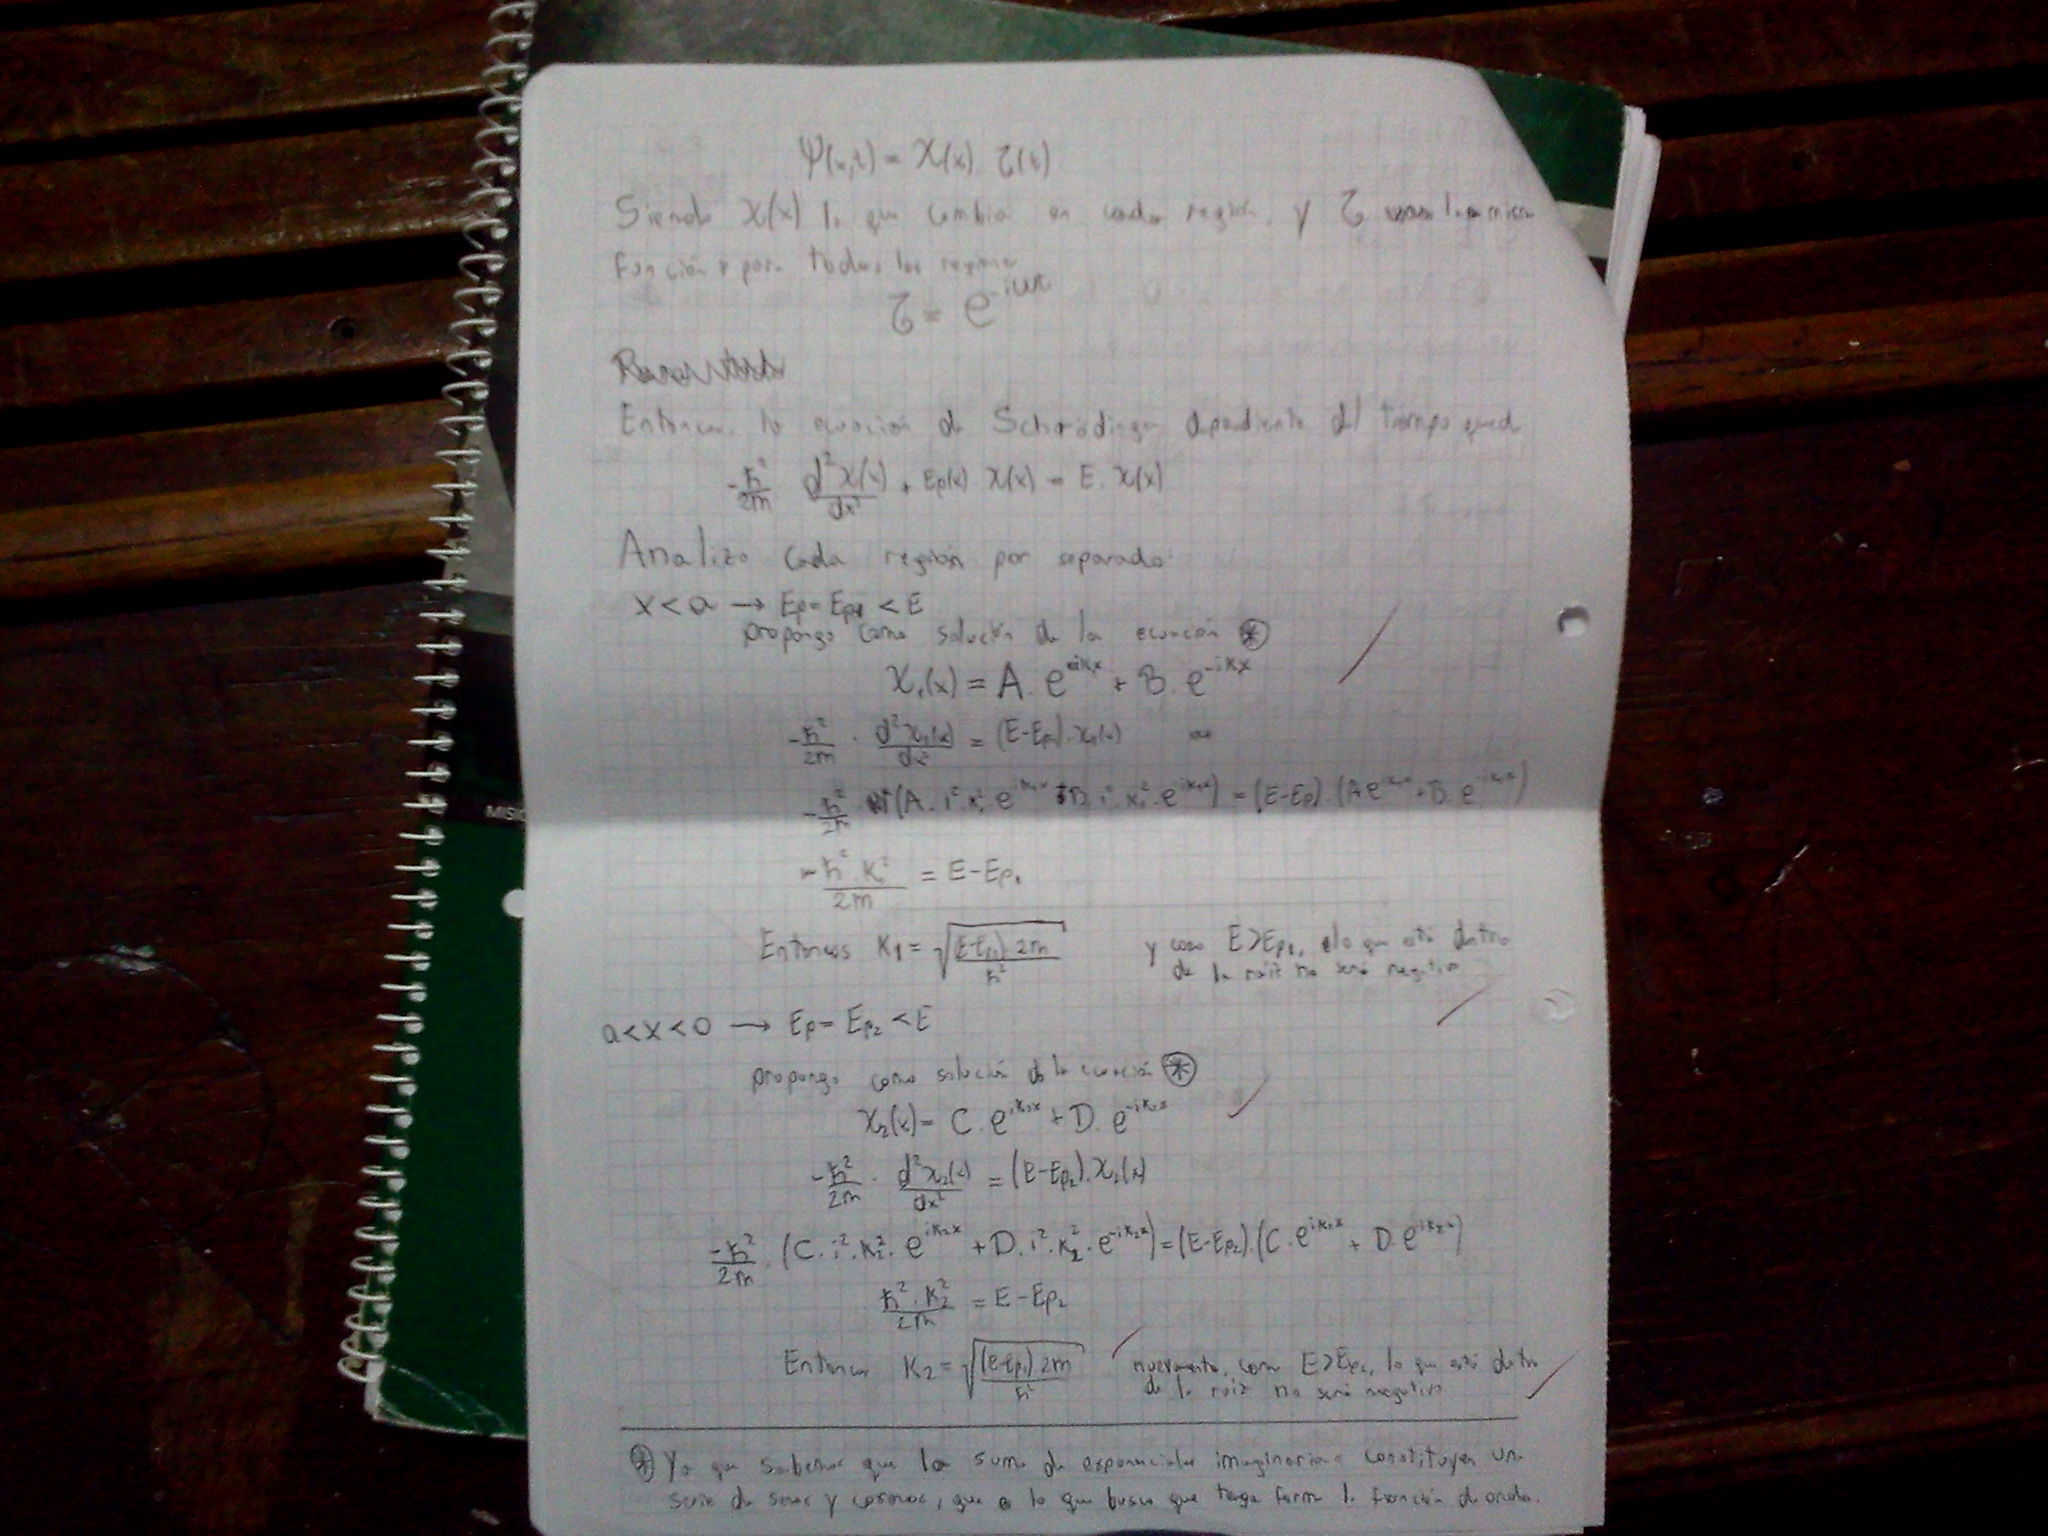 Ψ(x,t) = X(x) . τ(t)
Siendo X(x) lo que cambia en cada región, y τ una misma
función para todas las regiones
τ = e^-iωt
Entonces, la ecuación de Schrödinger dependiente del tiempo queda
-ħ²/2m d²X(x)/dx² + Ep(x) X(x) = E . X(x)
Analizo cada región por separado
x < a → Ep = Ep1 < E
propongo como solución de la ecuación ⊛
X₁(x) = A . e^ikx + B . e^-ikx
-ħ²/2m . d²X₁(x)/dx² = (E-Ep1) . X₁(x)
-ħ²/2m (A . i² . k₁² . e^ik₁x + B . i² . k₁² . e^-ik₁x) = (E-Ep) . (A e^ik₁x + B . e^-ik₁x)
ħ² . k₁²/2m = E - Ep₁
Entonces K₁ = √((E-Ep₁) 2m/ħ²) y como E>Ep₁, lo que está dentro
de la raíz no será negativo
a < x < 0 → Ep = Ep₂ < E
propongo como solución de la ecuación ⊛
X₂(x) = C . e^ik₂x + D . e^-ik₂x
-ħ²/2m . d²X₂(x)/dx² = (E-Ep₂) . X₂(x)
-ħ²/2m . (C . i² . k₂² . e^ik₂x + D . i² . k₂² . e^-ik₂x) = (E-Ep₂) . (C . e^ik₂x + D . e^ik₂x)
ħ² . k₂²/2m = E - Ep₂
Entonces K₂ = √((E-Ep₂) 2m/ħ²) nuevamente, como E>Ep₂, lo que está dentro
de la raíz no será negativo
⊛ Ya que sabemos que la suma de exponenciales imaginarias constituyen una
serie de senos y cosenos, que es lo que busco que tenga forma la función de onda.